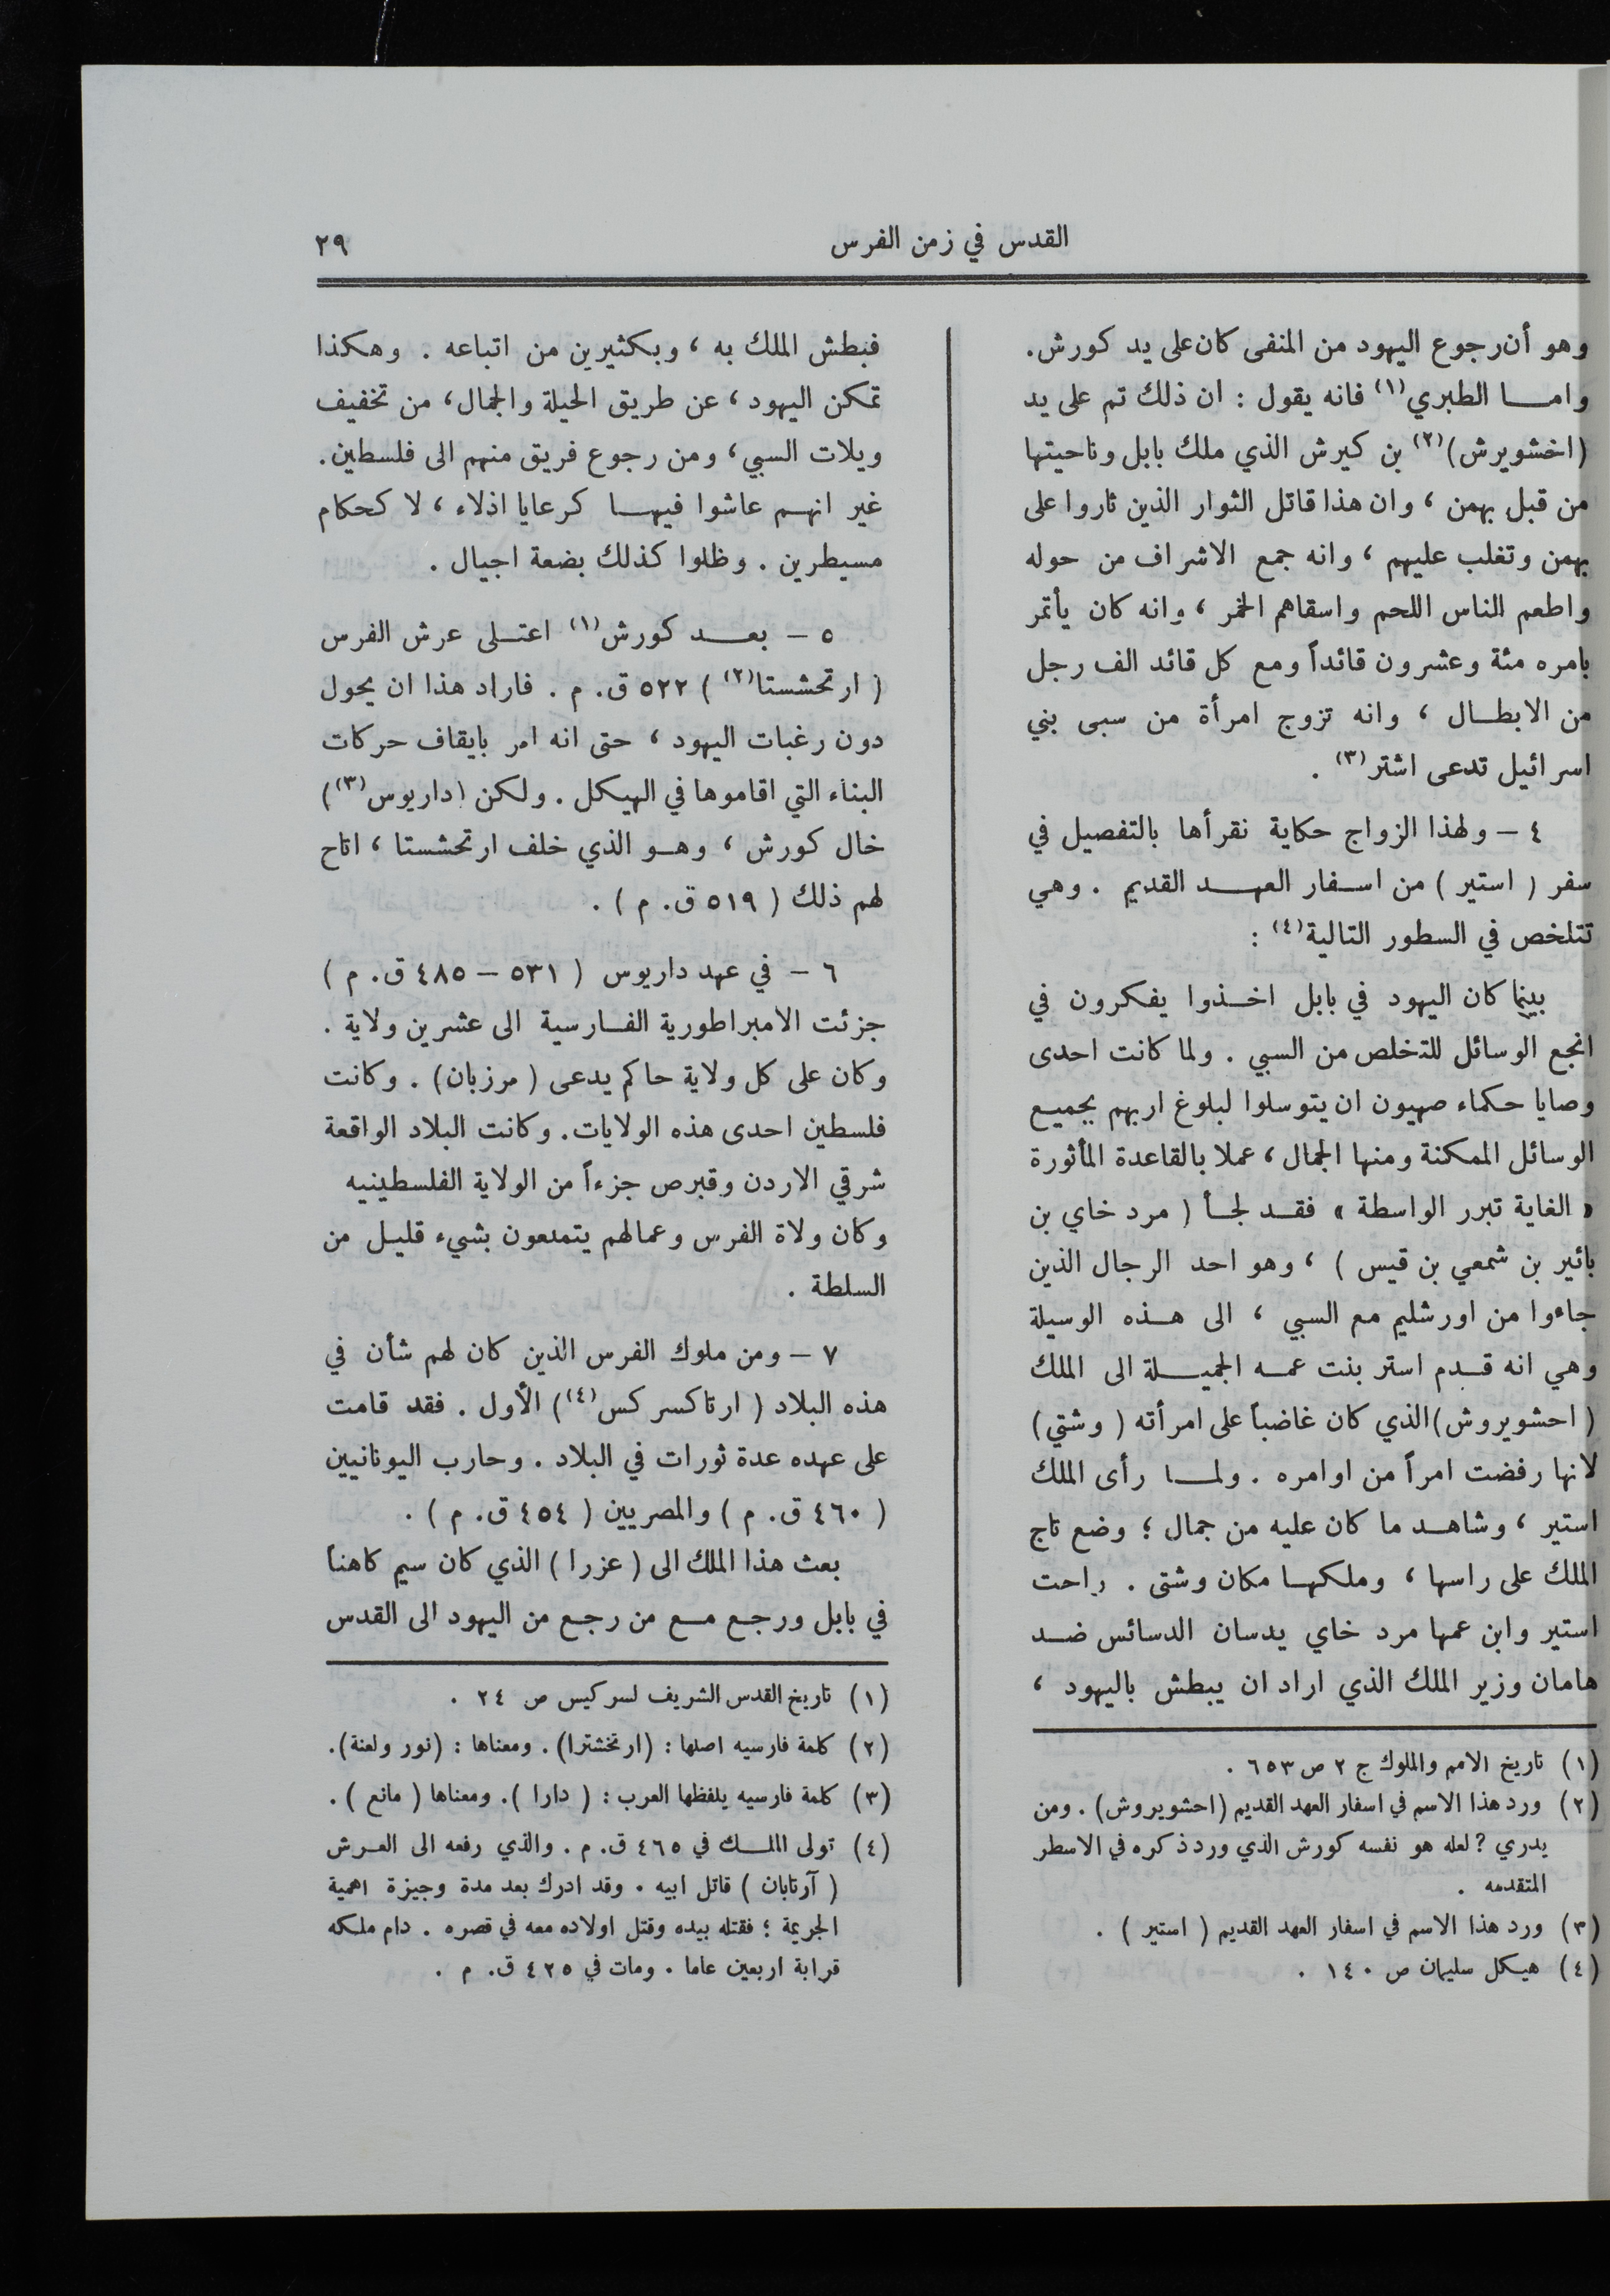 القدس في زمن الفرس
٢٩
وهو أن رجوع اليهود من المنفى كان على يد كورش.
وامـــا الطبري(١) فانه يقول : ان ذلك تم على يد
(اخشويرش)(٢) بن كيرش الذي ملك بابل وناحيتها
من قبل بهمن ، وان هذا قاتل الثوار الذين ثاروا على
بهمن وتغلب عليهم ، وانه جمع الاشراف من حوله
واطعم الناس اللحم واسقاهم الخمر ، وانه كان يأتمر
بامره مئة وعشرون قائداً ومع كل قائد الف رجل
من الابطـال ، وانه تزوج امرأة من سبى بني
اسرائيل تدعى اشتر(٣) .
٤ – ولهذا الزواج حكاية نقرأها بالتفصيل في
سفر ( استير ) من اسـفار العهـد القديم . وهي
تتلخص في السطور التالية(٤) :
بينما كان اليهود في بابل اخـذوا يفكرون في
انجع الوسائل للتخلص من السبي . ولما كانت احدى
وصايا حكماء صهيون ان يتوسلوا لبلوغ اربهم بجميع
الوسائل الممكنة ومنها الجمال ، عملا بالقاعدة المأثورة
« الغاية تبرر الواسطة » فقـد لجـأ ( مرد خاي بن
بائير بن شمعي بن قيس ) ، وهو احد الرجال الذين
جاءوا من اورشليم مع السبي ، الى هـذه الوسيلة
وهي انه قـدم استر بنت عمـه الجميـلة الى الملك
( احشويروش) الذي كان غاضباً على امرأته ( وشتي )
لانها رفضت امراً من اوامره . ولمـا رأى الملك
استير ، وشاهـد ما كان عليه من جمال ؛ وضع تاج
الملك على راسها ، وملكهـا مكان وشتى . راحت
استير وابن عمها مرد خاي يدسان الدسائس ضـد
هامان وزير الملك الذي اراد ان يبطش باليهود ،
(١) تاريخ الامم والملوك ج ٢ ص ٦٥٣ .
(٢) ورد هذا الاسم في اسفار العهد القديم (احشويروش) . ومن
يدري ? لعله هو نفسه كورش الذي ورد ذكره في الاسطر
المتقدمه .
(٣) ورد هذا الاسم في اسفار العهد القديم ( استير ) .
(٤) هيكل سليمان ص ١٤٠ .
فبطش الملك به ، وبكثيرين من اتباعه . وهكذا
تمكن اليهود ، عن طريق الحيلة والجمال، من تخفيف
ويلات السبي، ومن رجوع فريق منهم الى فلسطين.
غير انهـم عاشوا فيهـا كرعايا اذلاء ، لا كحكام
مسيطرين . وظلوا كذلك بضعة اجيال .
٥ – بعـد كورش(١) اعتـلى عرش الفرس
( ارتحشستا(٢) ) ٥٢٢ ق. م . فاراد هذا ان يحول
دون رغبات اليهود ، حتى انه امر بايقاف حركات
البناء التي اقاموها في الهيكل . ولكن (داريوس(٣))
خال كورش ، وهـو الذي خلف ارتحشستا ، اتاح
لهم ذلك ( ٥١٩ ق. م ) .
٦ – في عهد داريوس ( ٥٣١ – ٤٨٥ ق. م )
جزئت الامبراطورية الفـارسية الى عشرين ولاية .
وكان على كل ولاية حاكم يدعى ( مرزبان ) . وكانت
فلسطين احدى هذه الولايات. وكانت البلاد الواقعة
شرقي الاردن وقبرص جزءاً من الولاية الفلسطينيه
وكان ولاة الفرس وعمالهم يتمتعون بشيء قليـل من
السلطة .
٧ – ومن ملوك الفرس الذين كان لهم شأن في
هذه البلاد ( ارتاكسركس(٤)) الأول . فقد قامت
على عهده عدة ثورات في البلاد . وحارب اليونانيين
( ٤٦٠ ق. م ) والمصريين ( ٤٥٤ ق. م ) .
بعث هذا الملك الى ( عزرا ) الذي كان سيم كاهناً
في بابل ورجـع مـع من رجـع من اليهود الى القدس
(١) تاريخ القدس الشريف لسركيس ص ٢٤ .
(٢) كلمة فارسيه اصلها : (ارتخشترا). ومعناها : (نور ولعنة).
(٣) كلمة فارسيه يلفظها العرب : ( دارا ). ومعناها ( مانع ) .
(٤) تولى الملـك في ٤٦٥ ق. م . والذي رفعه الى العـرش
( آرتابان ) قاتل ابيه . وقد ادرك بعد مدة وجيزة اهمية
الجريمة ؛ فقتله بيده وقتل اولاده معه في قصره . دام ملكه
قرابة اربعين عاما . ومات في ٤٢٥ ق. م .